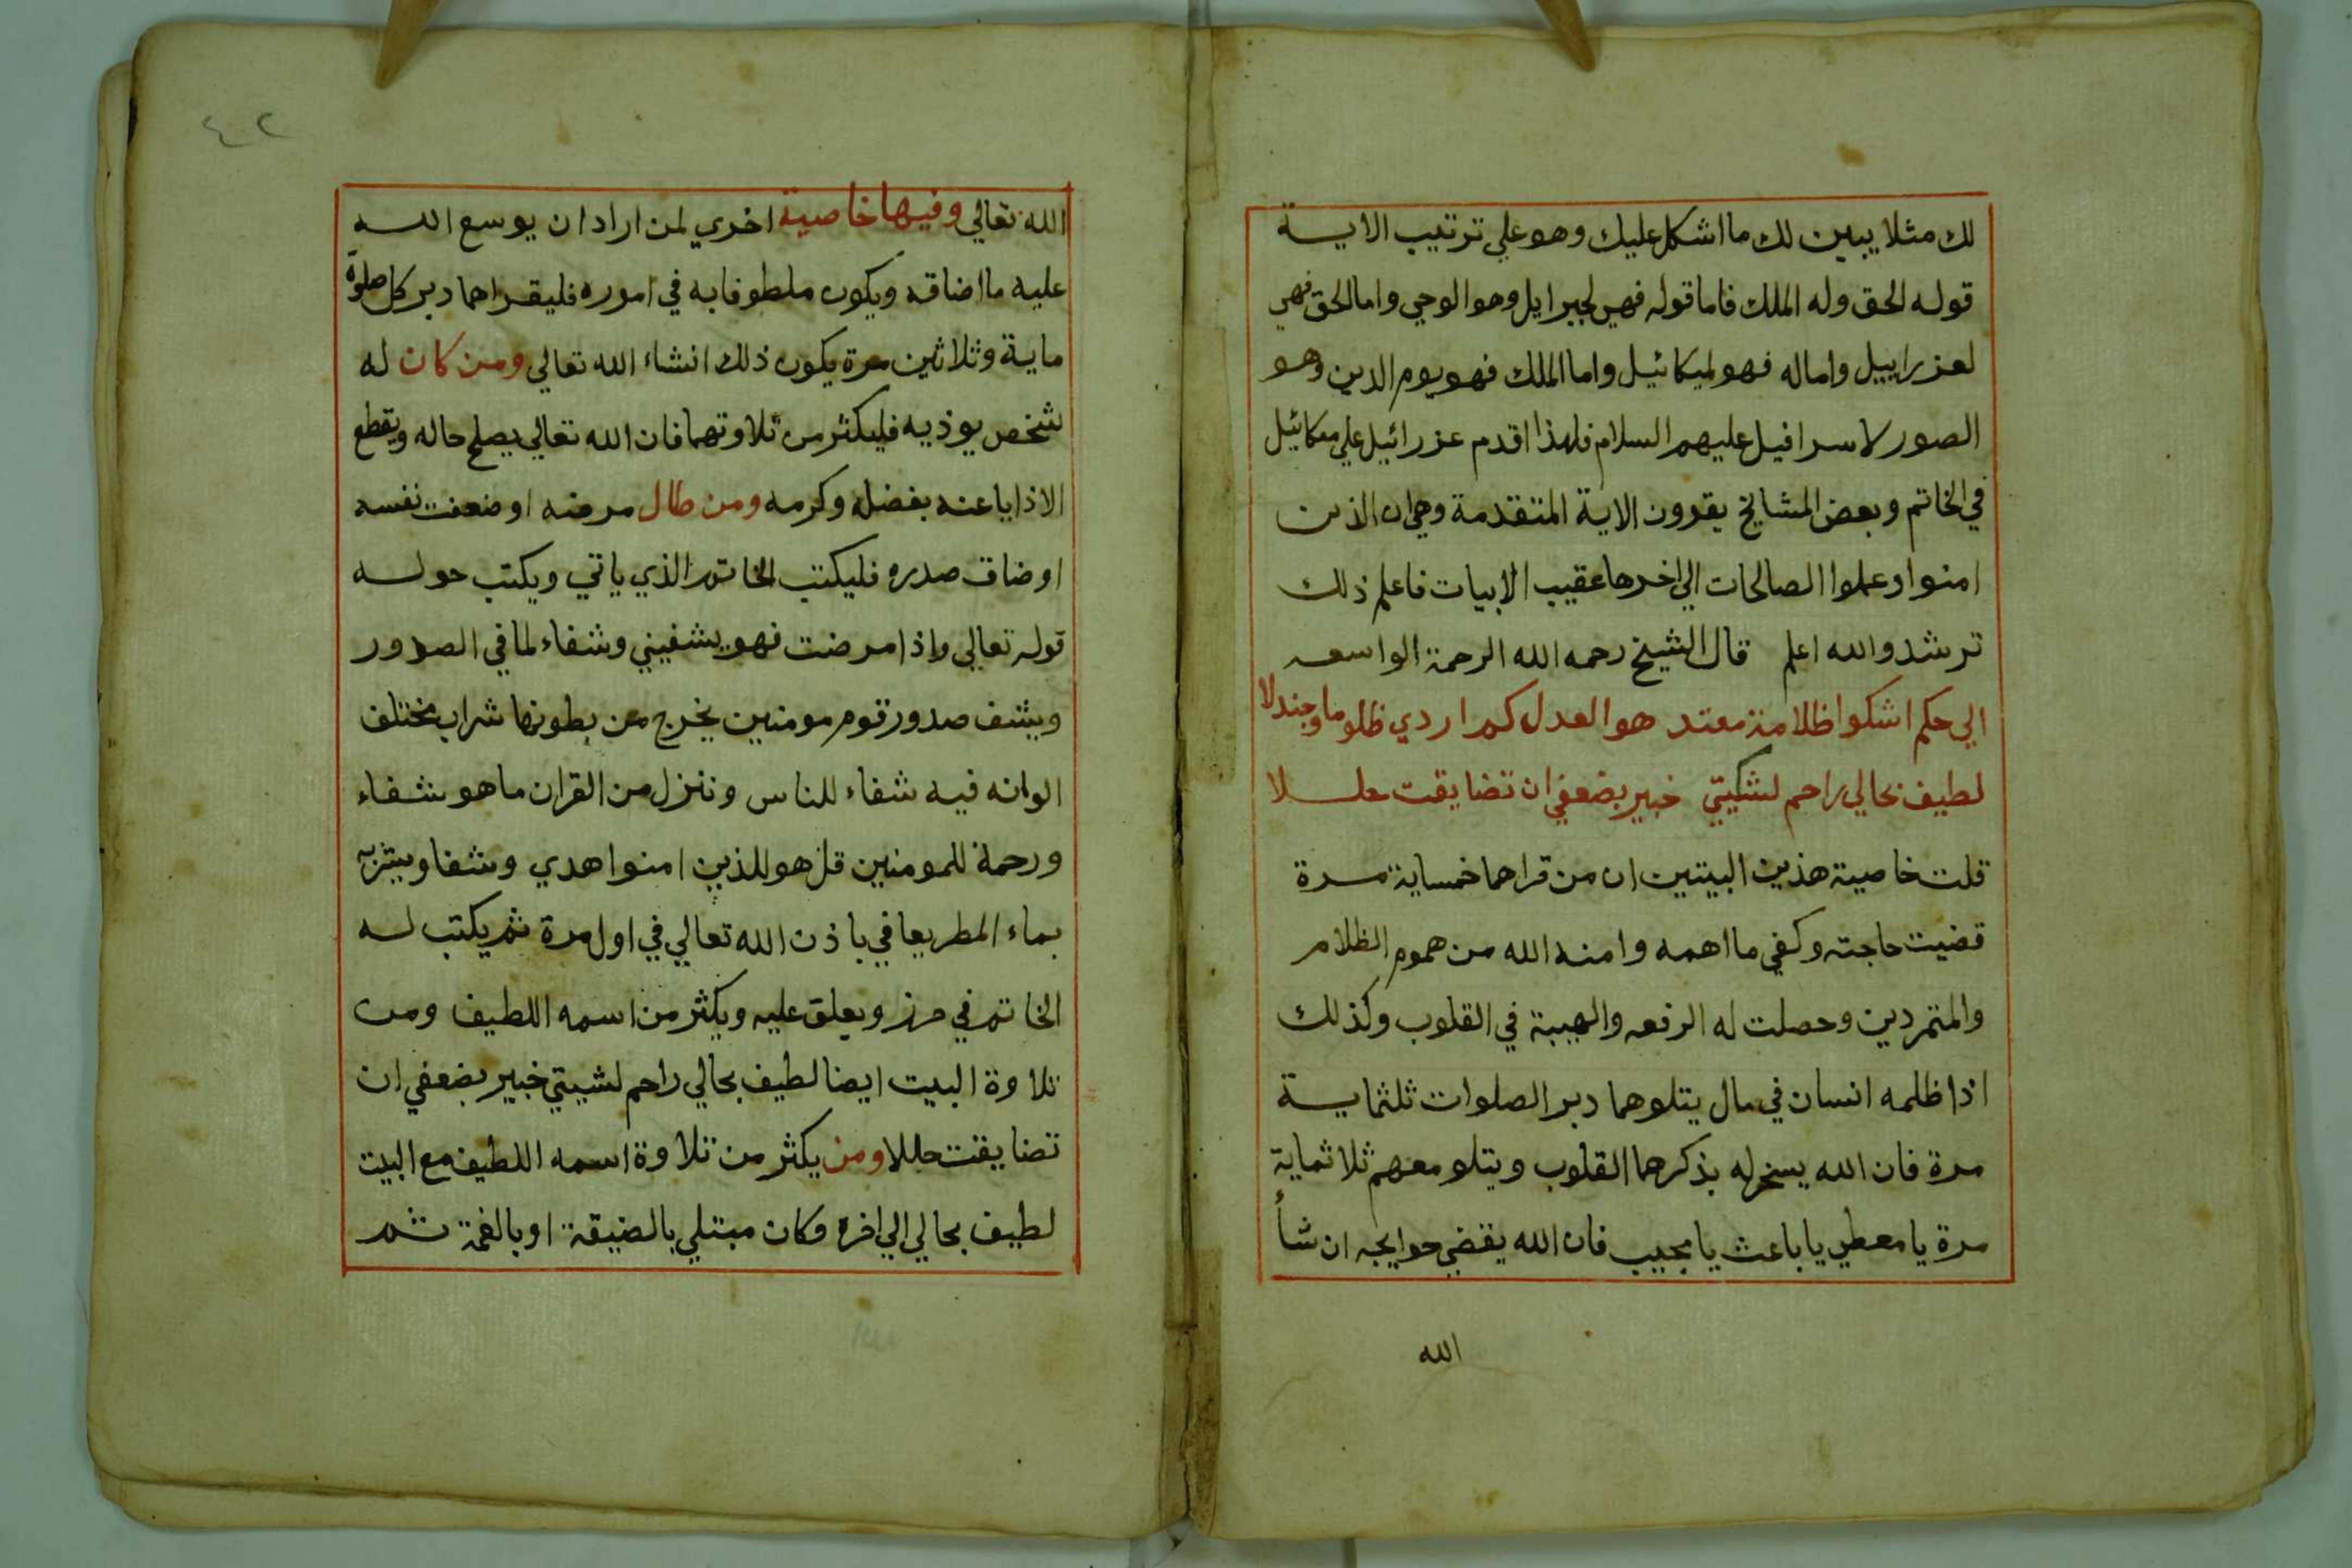 لك مثلا يبين لك ما اشكل عليك وهو علي ترتيب الاية
قوله الحق وله الملك فاما قوله فهي لجبرايل وهو الوحي واما الحق فهي
لعزراييل واما له فهو لميكائيل واما الملك فهو يوم الدين وهو
الصور لاسرافيل عليهم السلام فلهذا اقدم عزرائيل علي ميكائيل
في الخاتم وبعض المشايخ يقرون الاية المتقدمة وهي ان الذين
امنوا وعملوا الصالحات الي اخرها عقيب الابيات فاعلم ذلك
ترشد والله اعلم قال الشيخ رحمه الله الرحمة الواسعه
الي حكم اشكوا ظلامة معتد هو العدل كم اردي ظلوما وجندلا
لطيف بحالي راحم لشكيتي خبير بضعفي ان تضايقت حللا
قلت خاصية هذين البيتين ان من قراهما خمساية مرة
قضيت حاجته وكفي ما اهمه وامنه الله من هموم الظلام
والمتمردين وحصلت له الرفعه والهيبة في القلوب وكذلك
اذا ظلمه انسان في مال يتلوهما دبر الصلوات ثلثماية
مرة فان الله يسخر له بذكرهما القلوب ويتلو معهم ثلاثماية
مرة يا معطي يا باعث يا مجيب فان الله يقضي حوايجه ان شأ
الله
٤٢
الله تعالي وفيها خاصية اخري لمن اراد ان يوسع الله
عليه ما اضاقه ويكون ملطوفا به في اموره فليقراهما دبر كل صلوة
ماية وثلاثين مرة يكون ذلك انشاء الله تعالي ومن كان له
شخص يوذيه فليكثر من تلاوتهما فان الله تعالي يصلح حاله ويقطع
الاذايا عنه بفضله وكرمه ومن طال مرضه او ضعفت نفسه
او ضاق صدره فليكتب الخاتم الذي ياتي ويكتب حوله
قوله تعالي واذا مرضت فهو يشفيني وشفاء لما في الصدور
ويشف صدور قوم مومنين يخرج من بطونها شراب مختلف
الوانه فيه شفاء للناس وننزل من القران ما هو شفاء
ورحمة للمومنين قل هو للذين امنوا هدي وشفا ويشربه
بماء المطر يعافي باذن الله تعالي في اول مرة ثم يكتب له
الخاتم في حرز ويعلق عليه ويكثر من اسمه اللطيف ومن
تلاوة البيت ايضا لطيف بحالي راحم لشيتي خبير بضعفي ان
تضايقت حللا ومن يكثر من تلاوة اسمه اللطيف مع البيت
لطيف بحالي الي اخره وكان مبتلي بالضيقة او بالغمة ثم